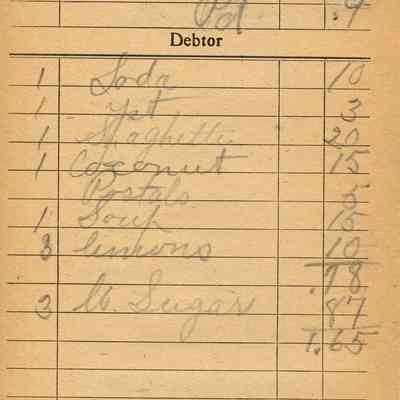 Pd. .9
Debtor
1 Soda 10
1 yst 3
1 Spaghetti 20
1 Cocoanut 15
Postals 5
1 Soup 15
3 limons 10
.78
3 lb. Sugar 87
1.65